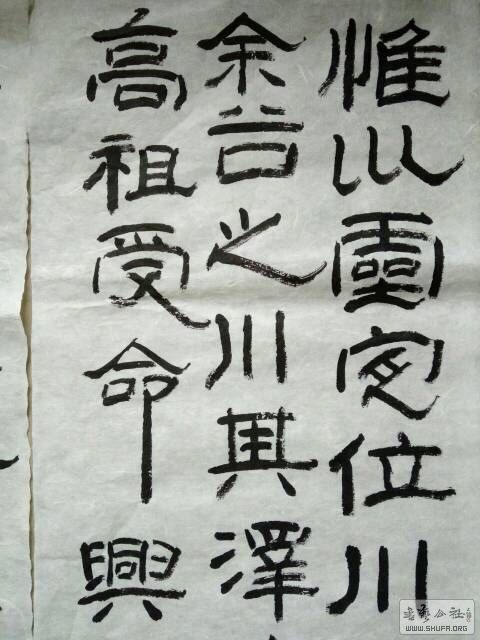 惟巛靈定位川
余谷之川其澤
高祖受命興
WWW.SHUFA.ORG